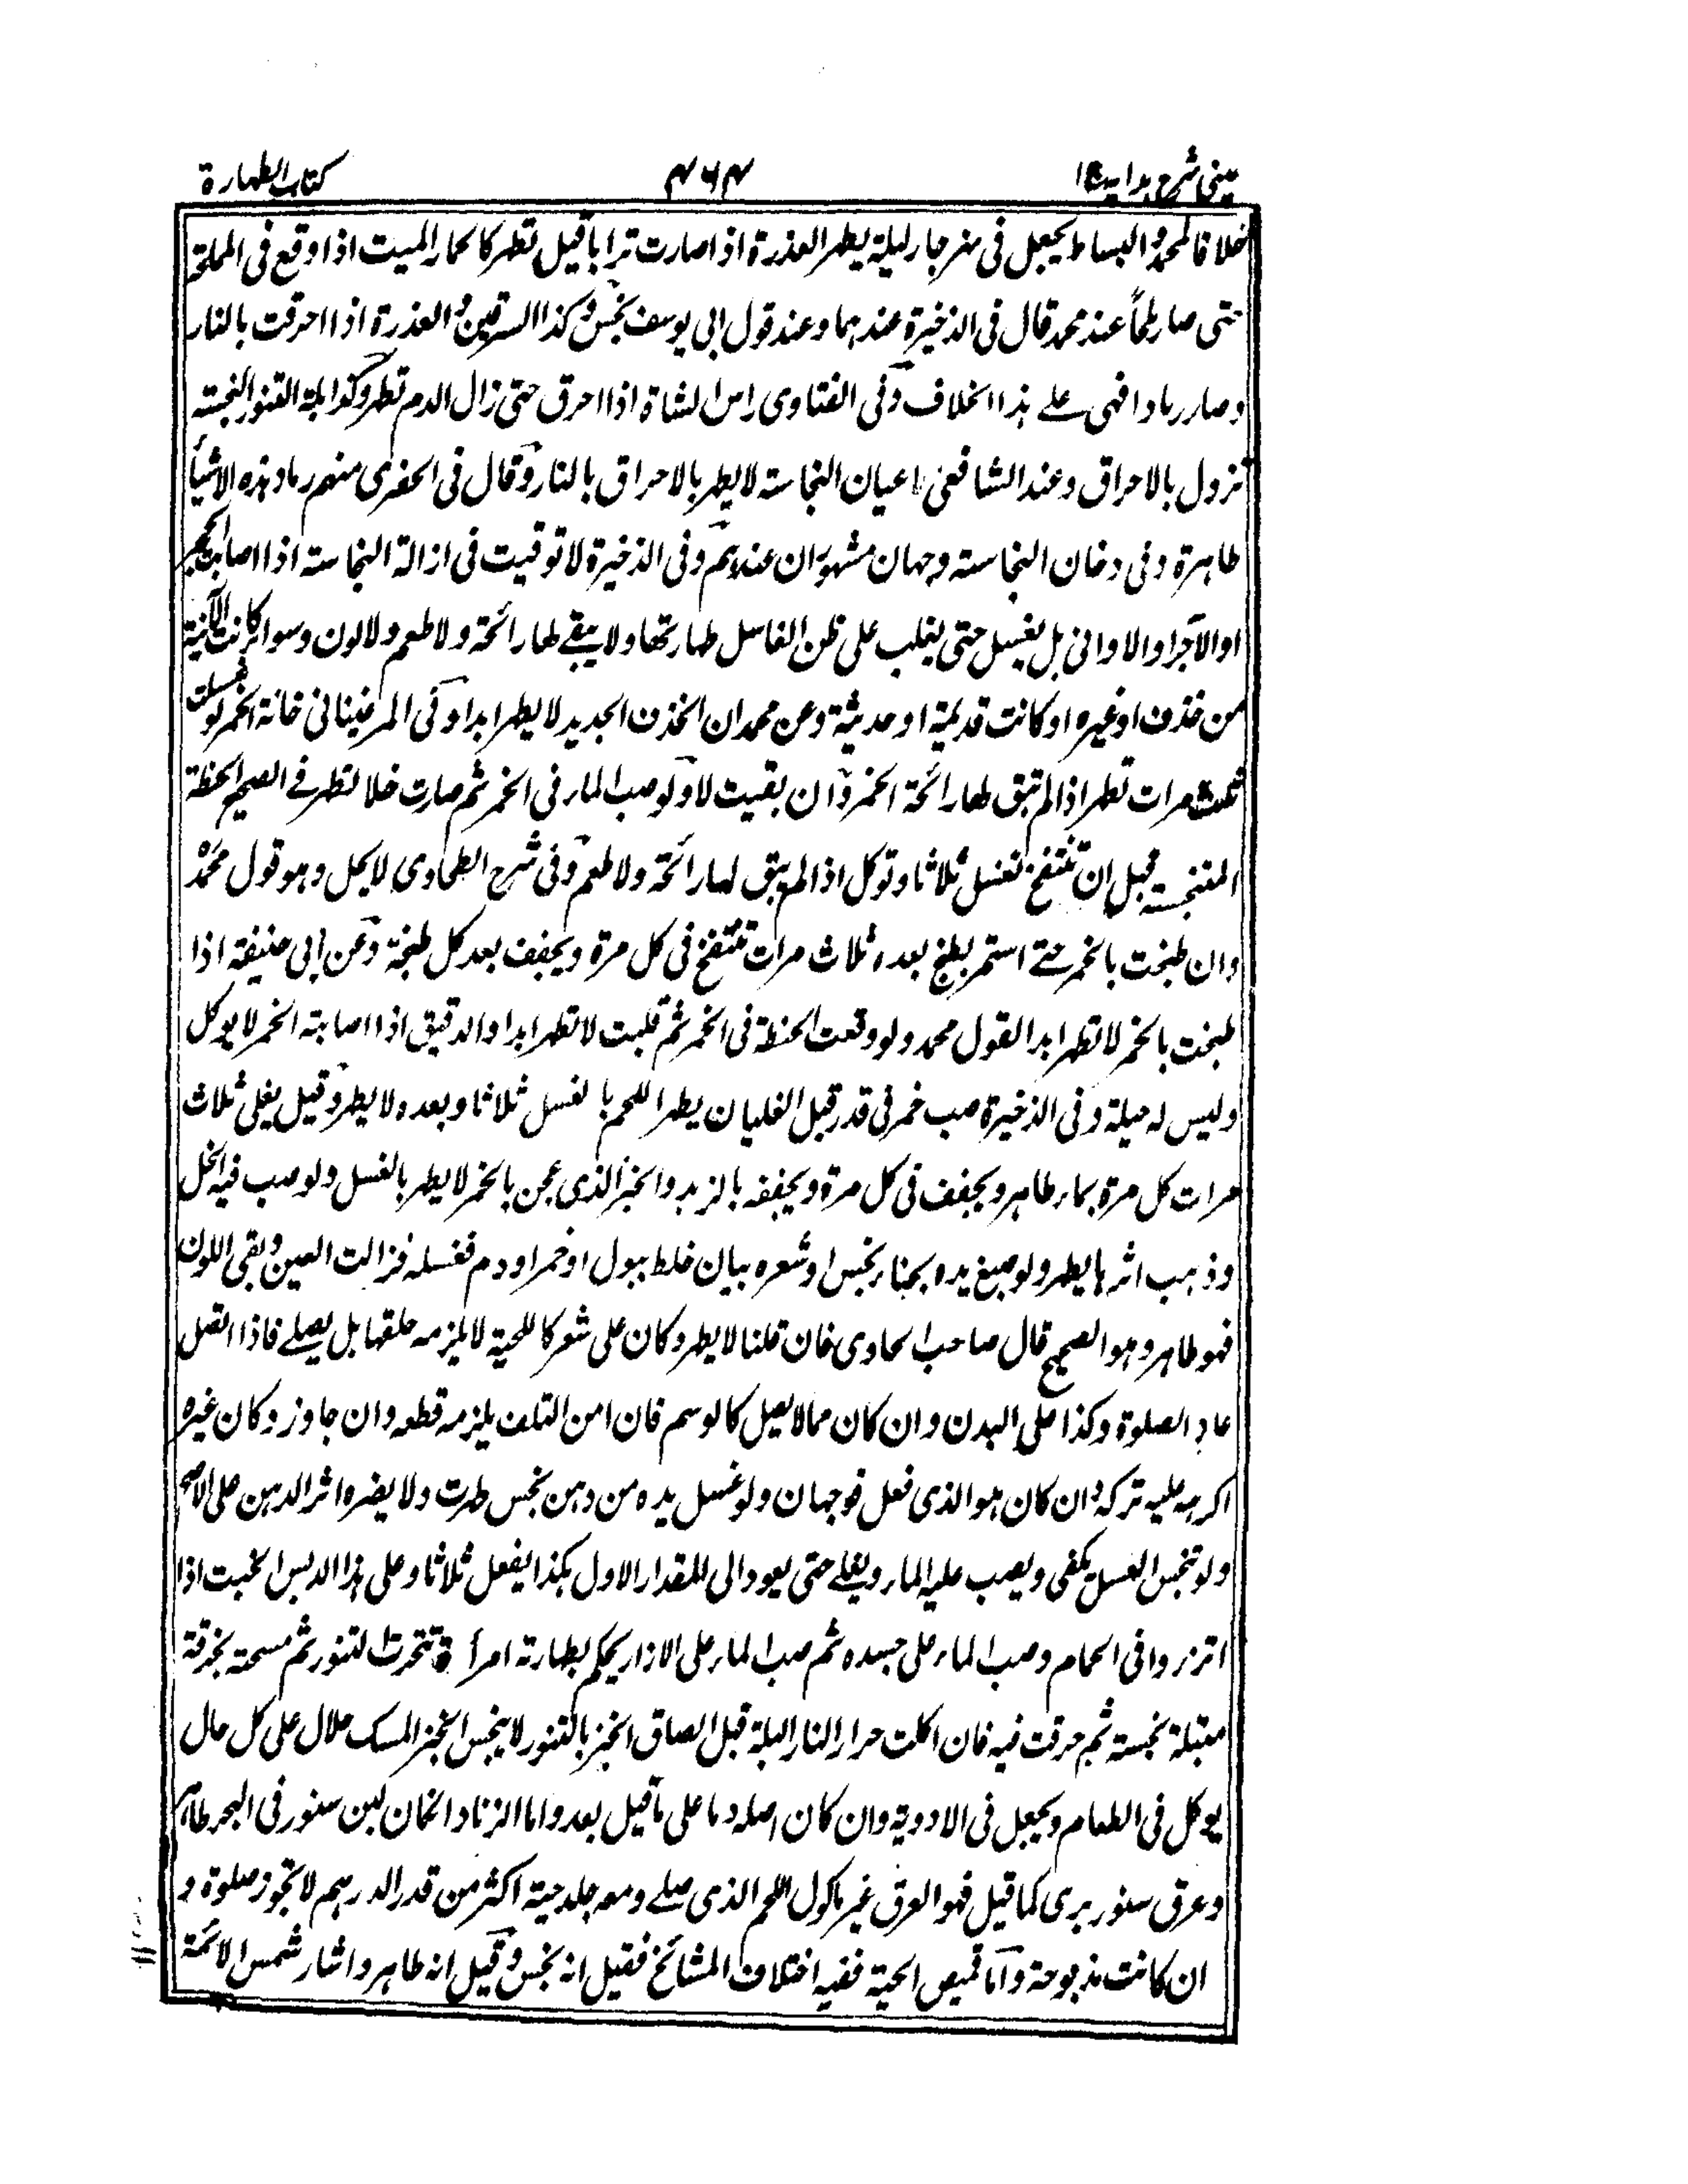 عینی شرح ہدایہ ج ۱
۷۶۴
کتاب الطهارة
خلافا لمحمد والبساط یجعل فی نهر جار لیلة یطهر العذرة اذا صارت ترابا قیل تطهر کالحمار المیت اذا وقع فی المملحة
حتی صار ملحاً عند محمد قال فی الذخیرة عندهما وعند قول ابی یوسف نجس وکذا السرقین والعذرة اذا احرقت بالنار
وصار رمادا فهی علے هذا الخلاف وفی الفتاوی راس الشاة اذا احرق حتی زال الدم تطهر وکذا بلة التنور النجسة
تزول بالاحراق وعند الشافعی اعیان النجاسة لا یطهر بالاحراق بالنار وقال فی الحضری منهم رماد هذه الاشیأ
طاهرة وفی دخان النجاسة وجهان مشهوران عندهم وفی الذخیرة لا توقیت فی ازالة النجاسة اذا اصابت الحجر
او الآجر او الاوانی بل یغسل حتی یغلب علی ظن الغاسل طهارتها ولا یبقے لها رائحة ولا طعم ولا لون وسواء کانت الآنیة
من خذف او غیره او کانت قدیمة او حدیثة وعن محمد ان الخذف الجدید لا یطهر ابدا وفی المرغینانی خانة الخمر لو غسلت
ثلث مرات تطهر اذا لم تبق لها رائحة الخمر وان بقیت لا ولو صب الماء فی الخمر ثم صارت خلا تطهر فے الصحیح الحنطة
المتنجسة قبل ان تنتفخ تغسل ثلاثا وتوکل اذا لم یبق لها رائحة ولا طعم وفی شرح الطحاوی لا یحل وهو قول محمد
وان طبخت بالخمر حتے استمر یطبخ بعده ثلاث مرات تنتفخ فی کل مرة ویجفف بعد کل طبخة وعن ابی حنیفة اذا
طبخت بالخمر لا تطهر ابدا لقول محمد ولو وقعت الحنطة فی الخمر ثم قلبت لا تطهر ابدا والدقیق اذا اصابته الخمر لا یوکل
ولیس له حیلة وفی الذخیرة صب خمر فی قدر قبل الغلیان یطهر اللحم بالغسل ثلاثا وبعده لا یطهر وقیل یغلی ثلاث
مرات کل مرة بماء طاهر ویجفف فی کل مرة ویجففه بالزبد والخبز الذی عجن بالخمر لا یطهر بالغسل ولو صب فیه الخل
وذهب اثرها یطهر ولو صبغ یده بحناء نجس او شعره بیان خلط ببول او خمر او دم فغسله فزالت العین وبقی اللون
فهو طاهر وهو الصحیح قال صاحب الحاوی فان قلنا لا یطهر وکان علی شعر کاللحیة لا یلزمه حلقها بل یصلے فاذا اتصل
عاد الصلوة وکذا علی البدن وان کان مما لا یصل کالوسم فان امن التلف یلزمه قطعه وان جاوز وکان غیره
اکرهه علیه ترکه وان کان هو الذی فعل فوجهان ولو غسل یده من دهن نجس طهرت ولا یضره اثر الدهن علی الاصح
ولو تنجس العسل یکفی ویصب علیه الماء ویغلے حتی یعود الی المقدار الاول هکذا یفعل ثلاثا وعلی هذا الدبس الجنب اذا
اتزر وا فی الحمام وصب الماء علی جسده ثم صب الماء علی الازار یحکم بطهارته امرأة تتحرت التنور ثم مسحته بخرقة
مبتلة نجسة ثم حرقت فیه فان اکلت حرار النار البلة قبل الصاق الخبز بالتنور لا ینجس الخبز المسک حلال علی کل حال
یوکل فی الطعام ویجعل فی الادویة وان کان اصله دما علی ما قیل بعد واما الزناد الخان لبن سنور فی البحر طاهر
وعرق سنور بری کما قیل فهو العرق غیر ماکول اللحم الذی صلے ومعه جلد حیة اکثر من قدر الدرهم لا تجوز صلوة و
ان کانت مذبوحة واما قمیص الحیة ففیه اختلاف المشائخ فقیل انه نجس وقیل انه طاهر واشار شمس الائمة